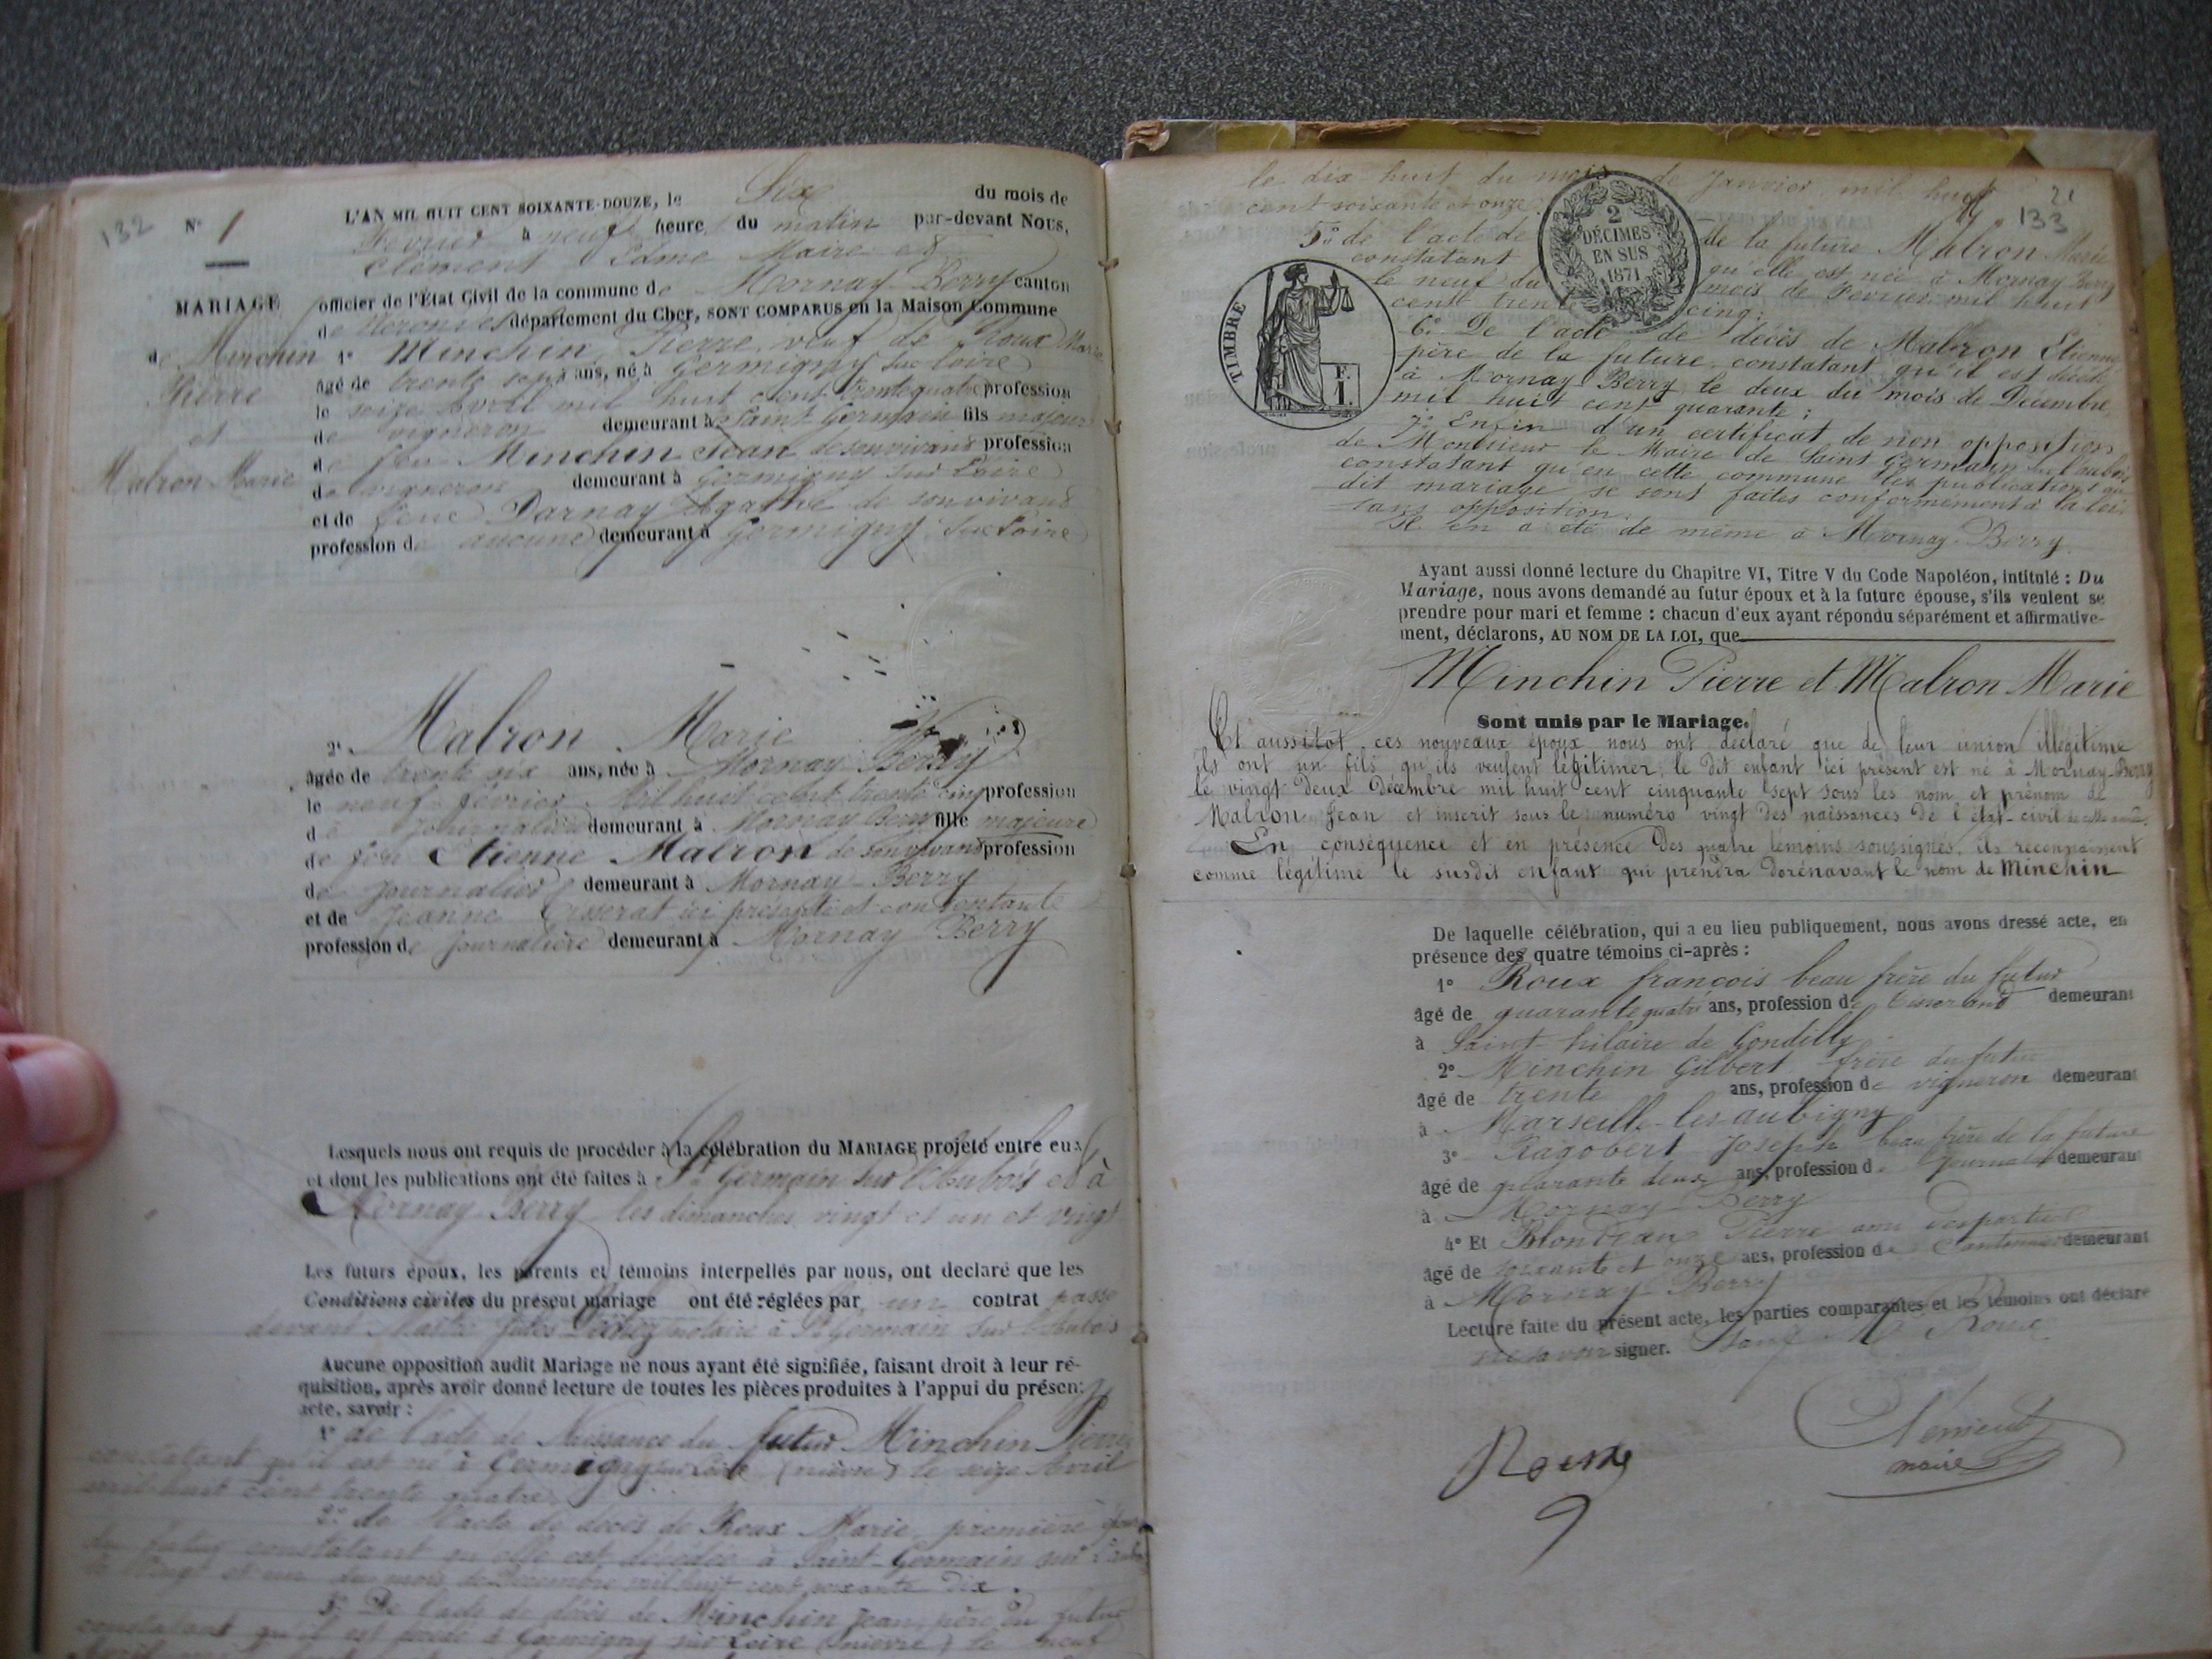 132
N° 1
L'AN MIL HUIT CENT SOIXANTE-DOUZE, le Six du mois de
Fevrier à neuf heure du matin par-devant NOUS,
Clément Edme Maire et
officier de l'État Civil de la commune de Mornay-Berry canton
de département du Cher, SONT COMPARUS en la Maison Commune
MARIAGE
de Minchin
Pierre
et
Malron Marie
1° Minchin Pierre, veuf de Roux Marie
âgé de trente sept ans, né à Germigny sur Loire
le seize Avril mil huit cent trente quatre profession
de vigneron demeurant à Saint Germain fils majeur
de feu Minchin Jean de son vivant profession
de vigneron demeurant à Germigny sur Loire
et de feue Darnay Agathe de son vivant
profession d. aucune demeurant à Germigny sur Loire
2° Malron Marie
âgée de trente six ans, née à Mornay Berry
le neuf fevrier Mil huit cent trente cinq profession
de journalière demeurant à Mornay Berry fille majeure
de feu Etienne Malron de son vivant profession
de journalier demeurant à Mornay-Berry
et de Jeanne Tisserat ici présente et consentante
profession de journalière demeurant à Mornay Berry
Lesquels nous ont requis de procéder à la célébration du MARIAGE projeté entre eux
et dont les publications ont été faites à St Germain sur l'Aubois et à
Mornay-Berry les dimanches vingt et un et vingt
Les futurs époux, les parents et témoins interpellés par nous, ont declaré que les
Conditions civiles du présent mariage ont été réglées par un contrat passé
devant Maître Jules notaire à St Germain sur l'Aubois
Aucune opposition audit Mariage ne nous ayant été signifiée, faisant droit à leur ré-
quisition, après avoir donné lecture de toutes les pièces produites à l'appui du présent
acte, savoir :
1° de l'acte de Naissance du futur Minchin Pierre
constatant qu'il est né à Germigny sur Loire (nièvre) le seize Avril
mil huit cent trente quatre
2° de l'acte de décès de Roux Marie, première
du futur constatant qu'elle est décédée à Saint-Germain sur
le vingt et un du mois de Décembre mil huit cent soixante dix.
3° De l'acte de décès de Minchin Jean, père du futur
constatant qu'il est à Germigny sur Loire (nievre) le neuf
21
133
le dix huit du mois de Janvier mil huit
cent soixante et onze.
2
DÉCIMES
EN SUS
1871
TIMBRE
F.
1.
5° de l'acte de de la future Malron Marie
constatant qu'elle est née à Mornay Berry
le neuf du mois de Fevrier mil huit
cent trente cinq:
6° De l'acte de décès de Malron Étienne
père de la future constatant qu'il est décédé
à Mornay-Berry le deux du mois de Décembre
mil huit cent quarante;
7° Enfin d'un certificat de non opposition
de Monsieur le Maire de Saint Germain sur l'aubois
constatant qu'en cette commune les publications du
dit mariage se sont faites conformément à la loi
sans opposition.
Il en a été de même à Mornay-Berry.
Ayant aussi donné lecture du Chapitre VI, Titre V du Code Napoléon, intitulé : Du
Mariage, nous avons demandé au futur époux et à la future épouse, s'ils veulent se
prendre pour mari et femme : chacun d'eux ayant répondu séparément et affirmative-
ment, déclarons, AU NOM DE LA LOI, que
Minchin Pierre et Malron Marie
Sont unis par le Mariage.
Et aussitot ces nouveaux époux nous ont declaré que de leur union illégitime
ils ont un fils qu'ils veulent légitimer; le dit enfant ici présent est né à Mornay-Berry
le vingt deux Décembre mil huit cent cinquante sept sous les nom et prénom de
Malron Jean et inscrit sous le numéro vingt des naissances de l'état-civil de cette année.
En conséquence et en présence des quatre témoins soussignés, ils reconnaissent
comme légitime le susdit enfant qui prendra dorénavant le nom de Minchin
De laquelle célébration, qui a eu lieu publiquement, nous avons dressé acte, en
présence des quatre témoins ci-après :
1° Roux françois beau frère du futur
âgé de quarante quatre ans, profession de tisserand demeurant
à Saint-hilaire de Gondilly
2° Minchin Gilbert frère du futur
âgé de trente ans, profession de vigneron demeurant
à Marseille-les-aubigny
3° Ragobert Joseph beau frère de la future
âgé de quarante deux ans, profession d. journalier demeurant
à Mornay-Berry
4° Et Blondeau Pierre ami des parties
âgé de soixante et onze ans, profession de Cantonnier demeurant
à Mornay-Berry
Lecture faite du présent acte, les parties comparantes et les témoins ont déclaré
ne savoir signer. Sauf Mr Roux
Roux
Clément
maire